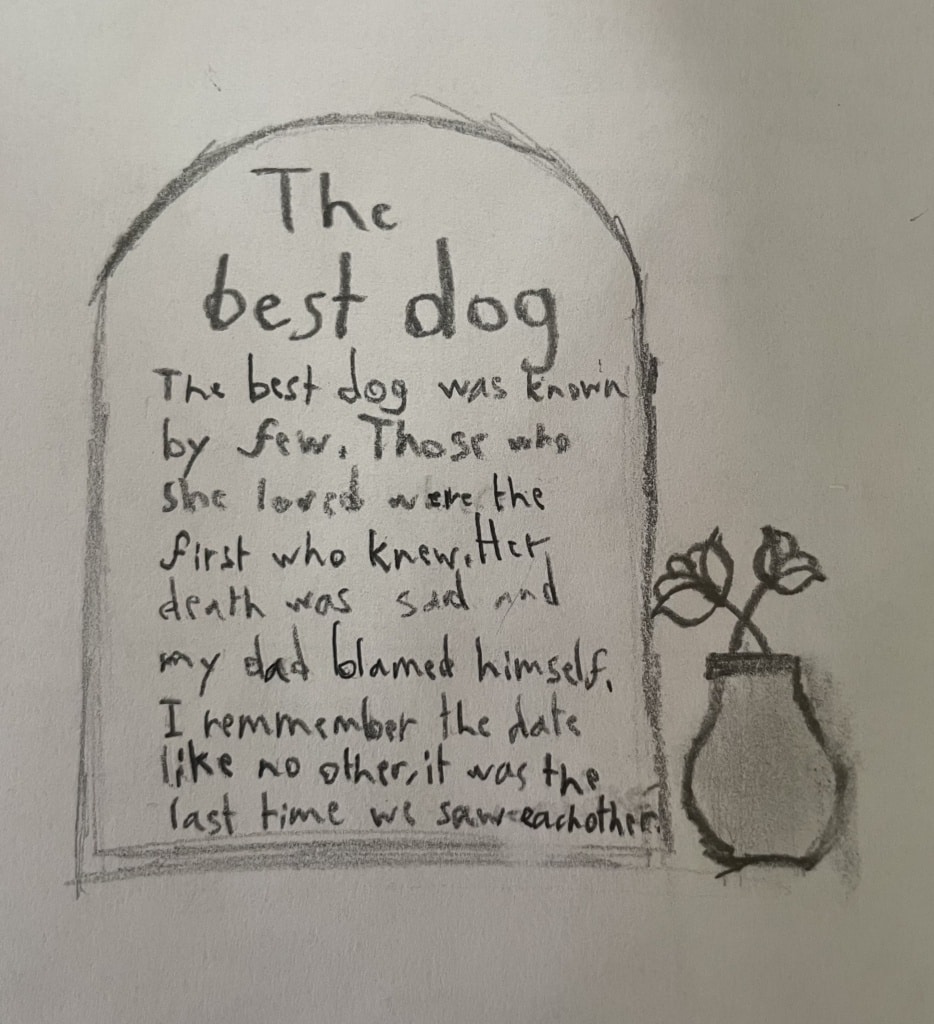 The
best dog
The best dog was known
by few. Those who
she loved were the
first who knew. Her
death was sad and
my dad blamed himself.
I remmember the date
like no other, it was the
last time we saw eachother.